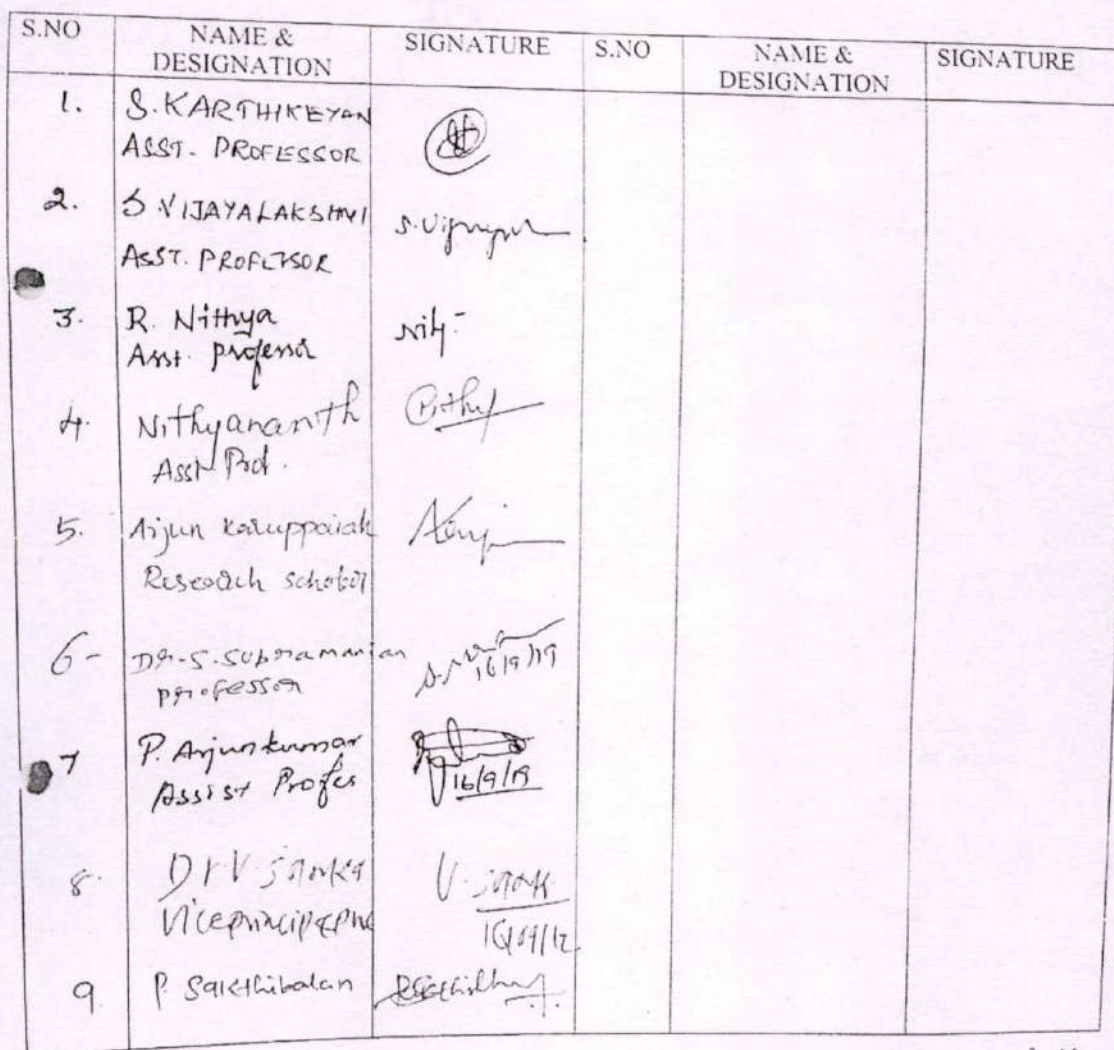 S.NO NAME & DESIGNATION SIGNATURE S.NO NAME & DESIGNATION SIGNATURE
1. S. KARTHIKEYAN
ASST. PROFESSOR
2. S. VIJAYALAKSHMI
ASST. PROFESSOR
3. R. Nithya
Asst. professor
4. Nithyananth
Asst Prof.
5. Arjun Karuppaiah
Research scholar
6- Dr. S. Subramanian
professor 16/9/19
7 P. Arjunkumar
Assist Profes 16/9/19
8. Dr V.
Vice
9. P. Sakthibalan